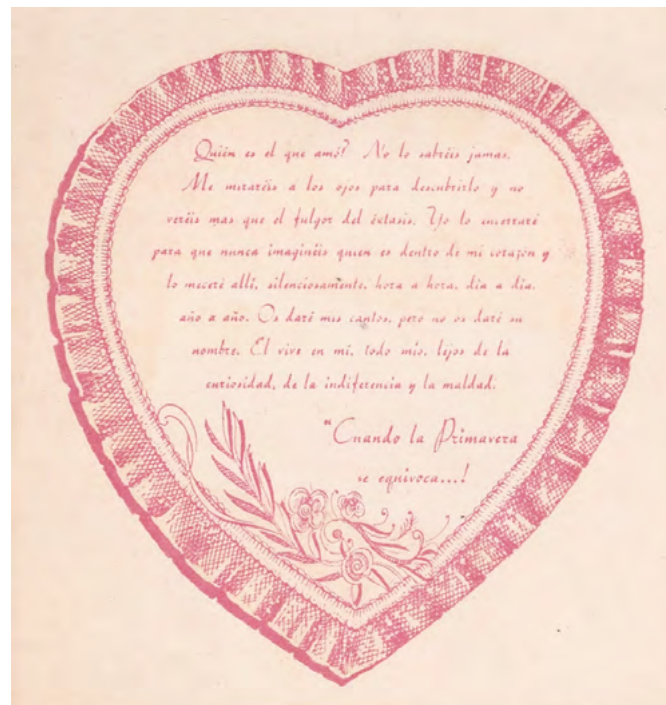 Quién es el que amó? No lo sabréis jamas.
Me miraréis a los ojos para descubrirlo y no
veréis mas que el fulgor del éxtasis. Yo lo encerraré
para que nunca imaginéis quien es dentro de mi corazón y
lo meceré allí, silenciosamente, hora a hora, dia a dia,
año a año. Os daré mis cantos, pero no os daré su
nombre. El vive en mi, todo mio, lejos de la
curiosidad, de la indiferencia y la maldad.
"Cuando la Primavera
se equivoca...!